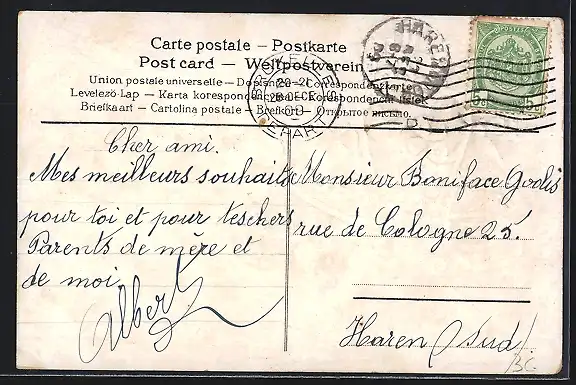 Carte postale – Postkarte
Post card – Weltpostverein
Union postale universelle – Dopisnice – Correspondenzkarte
Levelező-Lap – Karta korespondencyjna – Korespondenční lístek
Briefkaart – Cartolina postale – Brefkort – Открытое письмо.
BRUXELLES
20-21
28 DEC
DEPART
HAREN
POSTES
5c 5c
Cher ami.
Mes meilleurs souhaits
pour toi et pour tes chers
Parents de mère et
de moi
Albert
Monsieur Boniface Godis
rue de Cologne 25.
Haren (Sud)